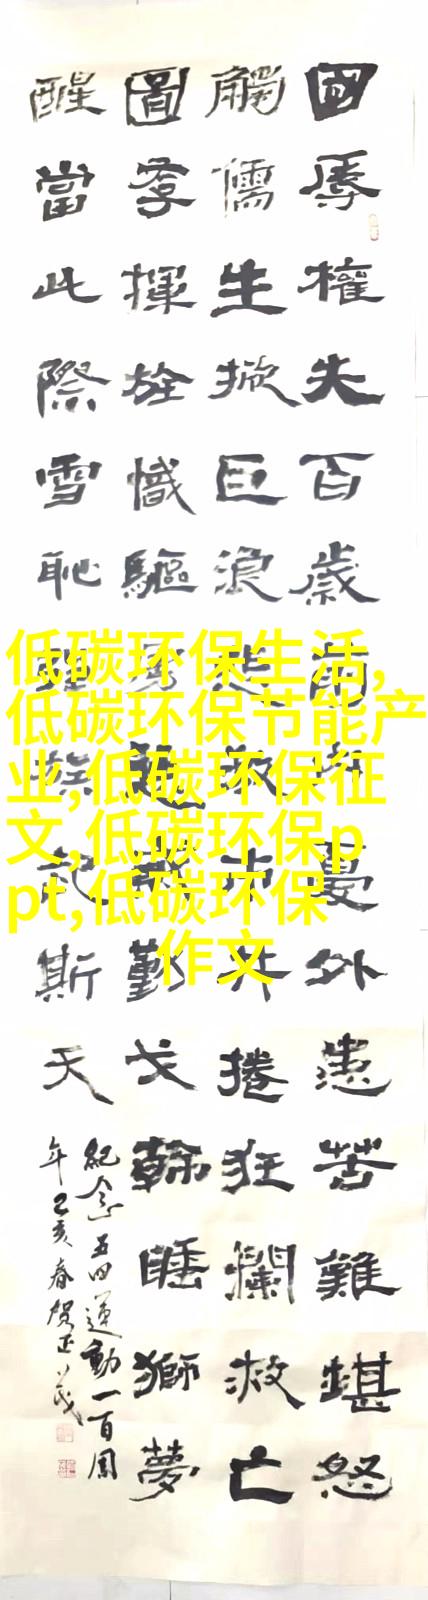 國辱權失百歲憂外患苦難堪怒
觸儒生掀巨浪捲狂瀾救亡
圖存揮旌幟驅戈睡獅夢
醒當此際雪恥族記斯天
紀念五四運動一百周
年己亥春賀正茂
低碳环保生活,
低碳环保节能产
业,低碳环保征
文,低碳环保p
pt,低碳环保
作文